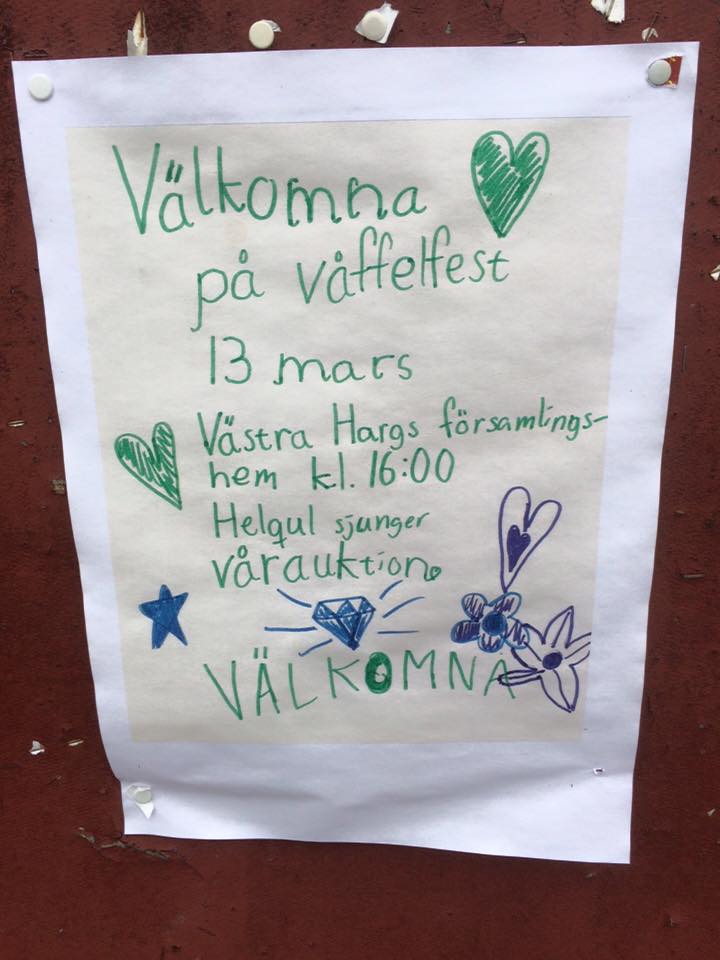 Välkomna
på våffelfest
13 mars
Västra Hargs församlings-
hem kl. 16:00
Helqul sjunger
vårauktion.
VÄLKOMNA